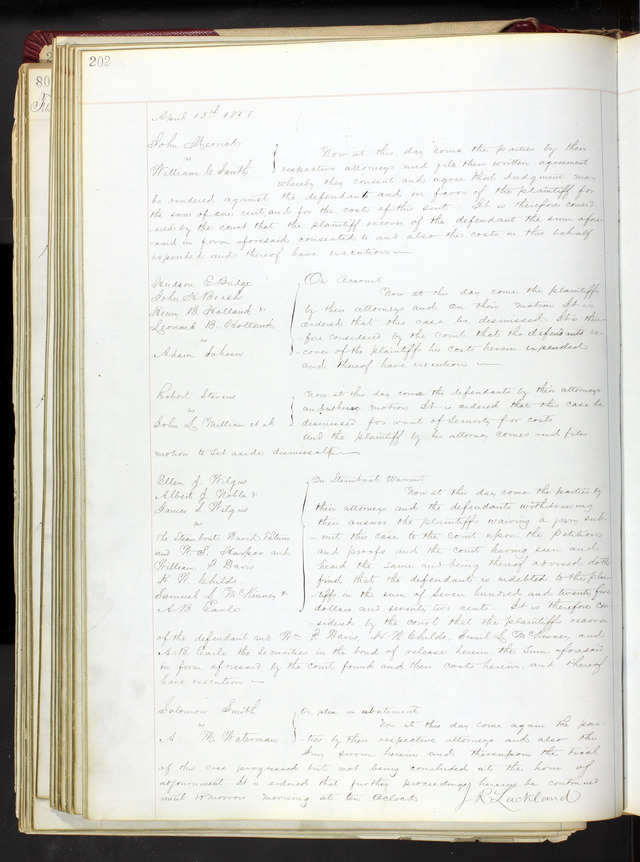 202
80
April 13d 1858.
John
vs
William C Smith
Now at this day come the parties by their
respective attorneys and file their written agreement
whereby they consent and agree that Judgment may
be rendered against the defendant and in favor of the plaintiff for
the sum of one cent, and for the costs of this suit. It is therefore consid
-ered by the court that the plaintiff recover of the defendant the sum afore
-said in form aforesaid consented to and also the costs in this behalf
expended and thereof have execution
Hudson E Bridge
John H Beach
Henry B Holland &
Leonard B. Holland
vs
Adam
On Account
Now at this day come the plaintiffs
by their attorneys and on their motion It is
ordered that this case be dismissed It is there
-fore considered by the court that the defendants re
-cover of the plaintiffs his costs herein expended
and thereof have execution
Robert Stevens
vs
John L. et al
Now at this day come the defendants by their attorneys
and motion It is ordered that this case be
dismissed for want of Security for costs
And the plaintiff by his attorney comes and files
motion to set aside dismissal
Ellen J. Wilgus
Albert J Noble &
James S Wilgus
vs
The Steam boat David Tatum
and W. S. Harper and
William P Davis
H. W. Childs
Samuel L McKinney &
A. B. Earle
On Steamboat Warrant
Now at this day come the parties by
their attorneys and the defendants withdrawing
their answer the plaintiffs waiving a jury sub-
-mit this case to the Court upon the Petition
and proofs and the court having seen and
heard the same and being thereof advised doth
find that the defendant is indebted to the plain
-tiffs in the sum of Seven hundred and twenty five
dollars and seventy two cents. It is therefore con
-sidered by the court that the plaintiffs recover
of the defendant and Wm P Davis, H. W. Childs, Saml L McKinney, and
A. B. Earle the Securities in the bond of release herein, the Sum aforesaid
in form aforesaid by the court found and their costs herein and thereof
have execution
Solomon Smith
vs
A M. Waterman
On plea in abatement
Now at this day come again the par-
-ties by their respective attorneys and also the
Jury sworn herein and thereupon the trial
of this case progressed but not being concluded at the hour of
adjournment It is ordered that further proceedings herein be continued
until tomorrow morning at ten Oclock
J R Lackland